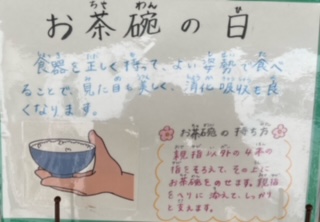 お茶碗の日
食器を正しく持って、よい姿勢で食べ
ることで、見た目も美しく、消化吸収を良
くなります。
お茶碗の持ち方
親指以外の4本の
指をそろえて、その上に
お茶碗をのせます。親指
をふちに添えて、しっかり
と支えます。